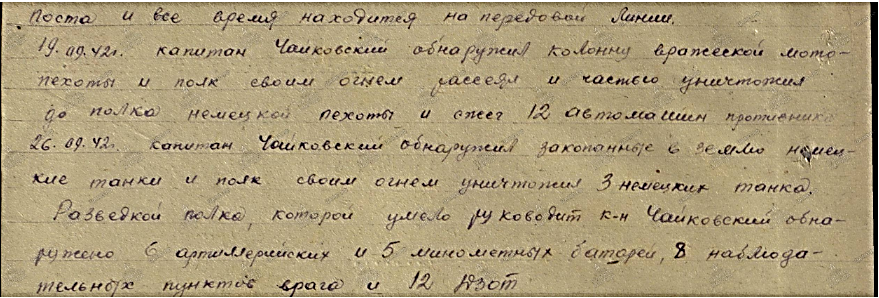 поста и все время находится на передовой линии.
19.09.42г. капитан Чайковский обнаружил колонну вражеской мото-
пехоты и полк своим огнем рассеял и частью уничтожил
до полка немецкой пехоты и сжег 12 автомашин противника
26.09.42г. капитан Чайковский обнаружил закопанные в землю немец-
кие танки и полк своим огнем уничтожил 3 немецких танка.
Разведкой полка, которой умело руководит к-н Чайковский обна-
ружено 6 артиллерийских и 5 минометных батарей, 8 наблюда-
тельных пунктов врага и 12 дзот